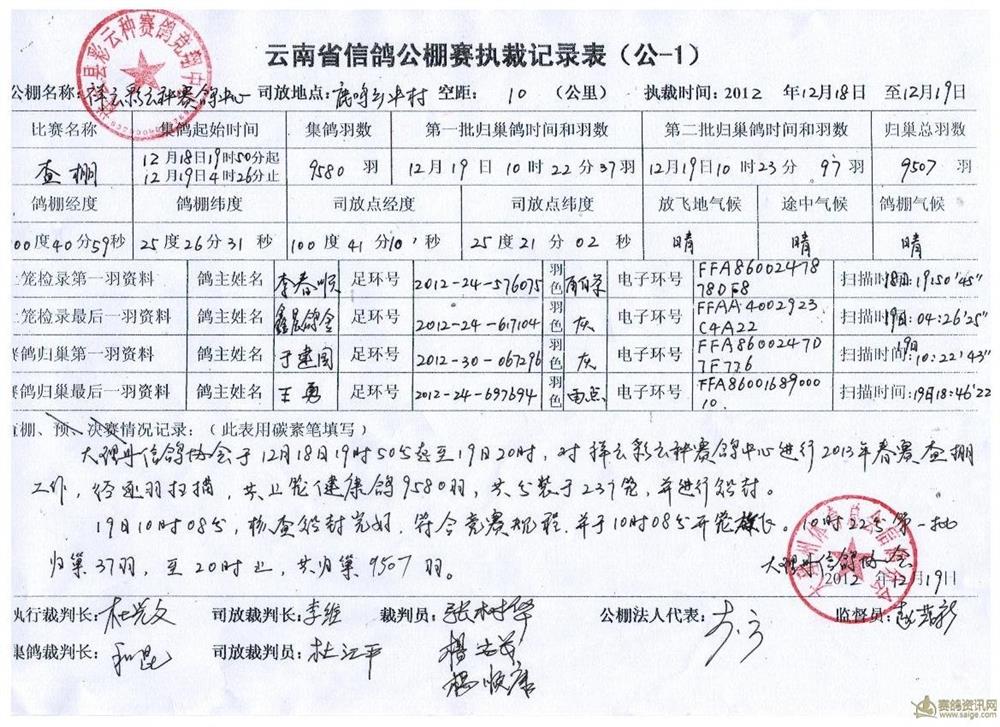 云南省信鸽公棚赛执裁记录表（公-1）
公棚名称：祥云彩云种赛鸽中心 司放地点：鹿鸣乡 村 空距： 10 （公里） 执裁时间：2012 年12月18日 至12月19日
比赛名称 集鸽起始时间 集鸽羽数 第一批归巢鸽时间和羽数 第二批归巢鸽时间和羽数 归巢总羽数
查棚 12月18日19时50分起 12月19日4时26分止 9580 羽 12月 19 日 10 时 22 分 37 羽 12月19日10时23分 97羽 9507 羽
鸽棚经度 鸽棚纬度 司放点经度 司放点纬度 放飞地气候 途中气候 鸽棚气候
00度40分59秒 25度26分31秒 100度41分10秒 25度21分02秒 晴 晴 晴
笼检录第一羽资料 鸽主姓名 李春顺 足环号 2012-24-576075 羽色 电子环号 FFA8600247878DF8 扫描时间：18日19:50'45"
笼检录最后一羽资料 鸽主姓名 鑫晨鸽舍 足环号 2012-24-617104 羽色 灰 电子环号 FFAA4002923C4A22 扫描时间：19日：04:26'25"
赛鸽归巢第一羽资料 鸽主姓名 于建国 足环号 2012-30-067296 羽色 灰 电子环号 FFA8600247D7F776 扫描时间：19日10:22'43"
赛鸽归巢最后一羽资料 鸽主姓名 王勇 足环号 2012-24-697694 羽色 雨点 电子环号 FFA8600168900010. 扫描时间：19日18:46'22
直棚、预、决赛情况记录：（此表用碳素笔填写）
大理州信鸽协会于12月18日19时50分起至19日20时，对祥云彩云种赛鸽中心进行2013年春赛查棚
工作，经逐羽扫描，共上笼健康鸽9580羽，共分装于237笼，并进行铅封。
19日10时08分，核查铅封完好，符合竞赛规程，并于10时08分开笼放飞。10时22分第一批
归巢37羽，至20时止，共归巢9507羽。
大理州信鸽协会
2012 年12月19日
执行裁判长：杜兴文 司放裁判长：李维 裁判员：张树华 公棚法人代表： 监督员：
集鸽裁判长：和昆 司放裁判员：杜江平 杨志茂
杨顺康
赛鸽资讯网
www.saige.com